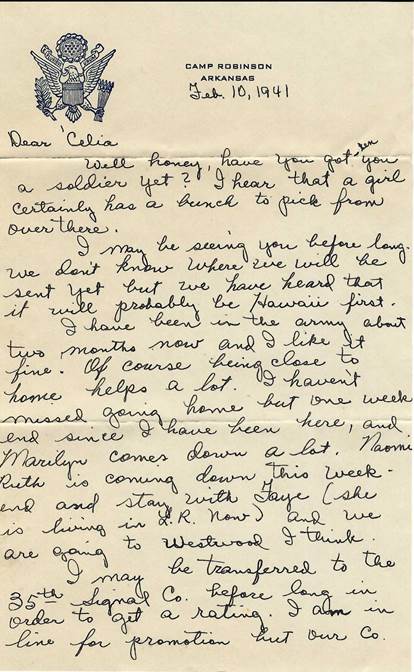 CAMP ROBINSON
ARKANSAS
Feb. 10, 1941
Dear 'Celia
Well honey, have you gotten you
a soldier yet? I hear that a girl
certainly has a bunch to pick from
over there.
I may be seeing you before long.
We don't know where we will be
sent yet but we have heard that
it will probably be Hawaii first.
I have been in the army about
two months now and I like it
fine. Of course being close to
home helps a lot. I haven't
missed going home but one week
end since I have been here, and
Marilyn comes down a lot. Naomi
Ruth is coming down this week-
end and stay with Faye (she
is living in L.R. now) and we
are going to Westwood I think.
I may be transferred to the
35th Signal Co. before long in
order to get a rating. I am in
line for promotion but our Co.